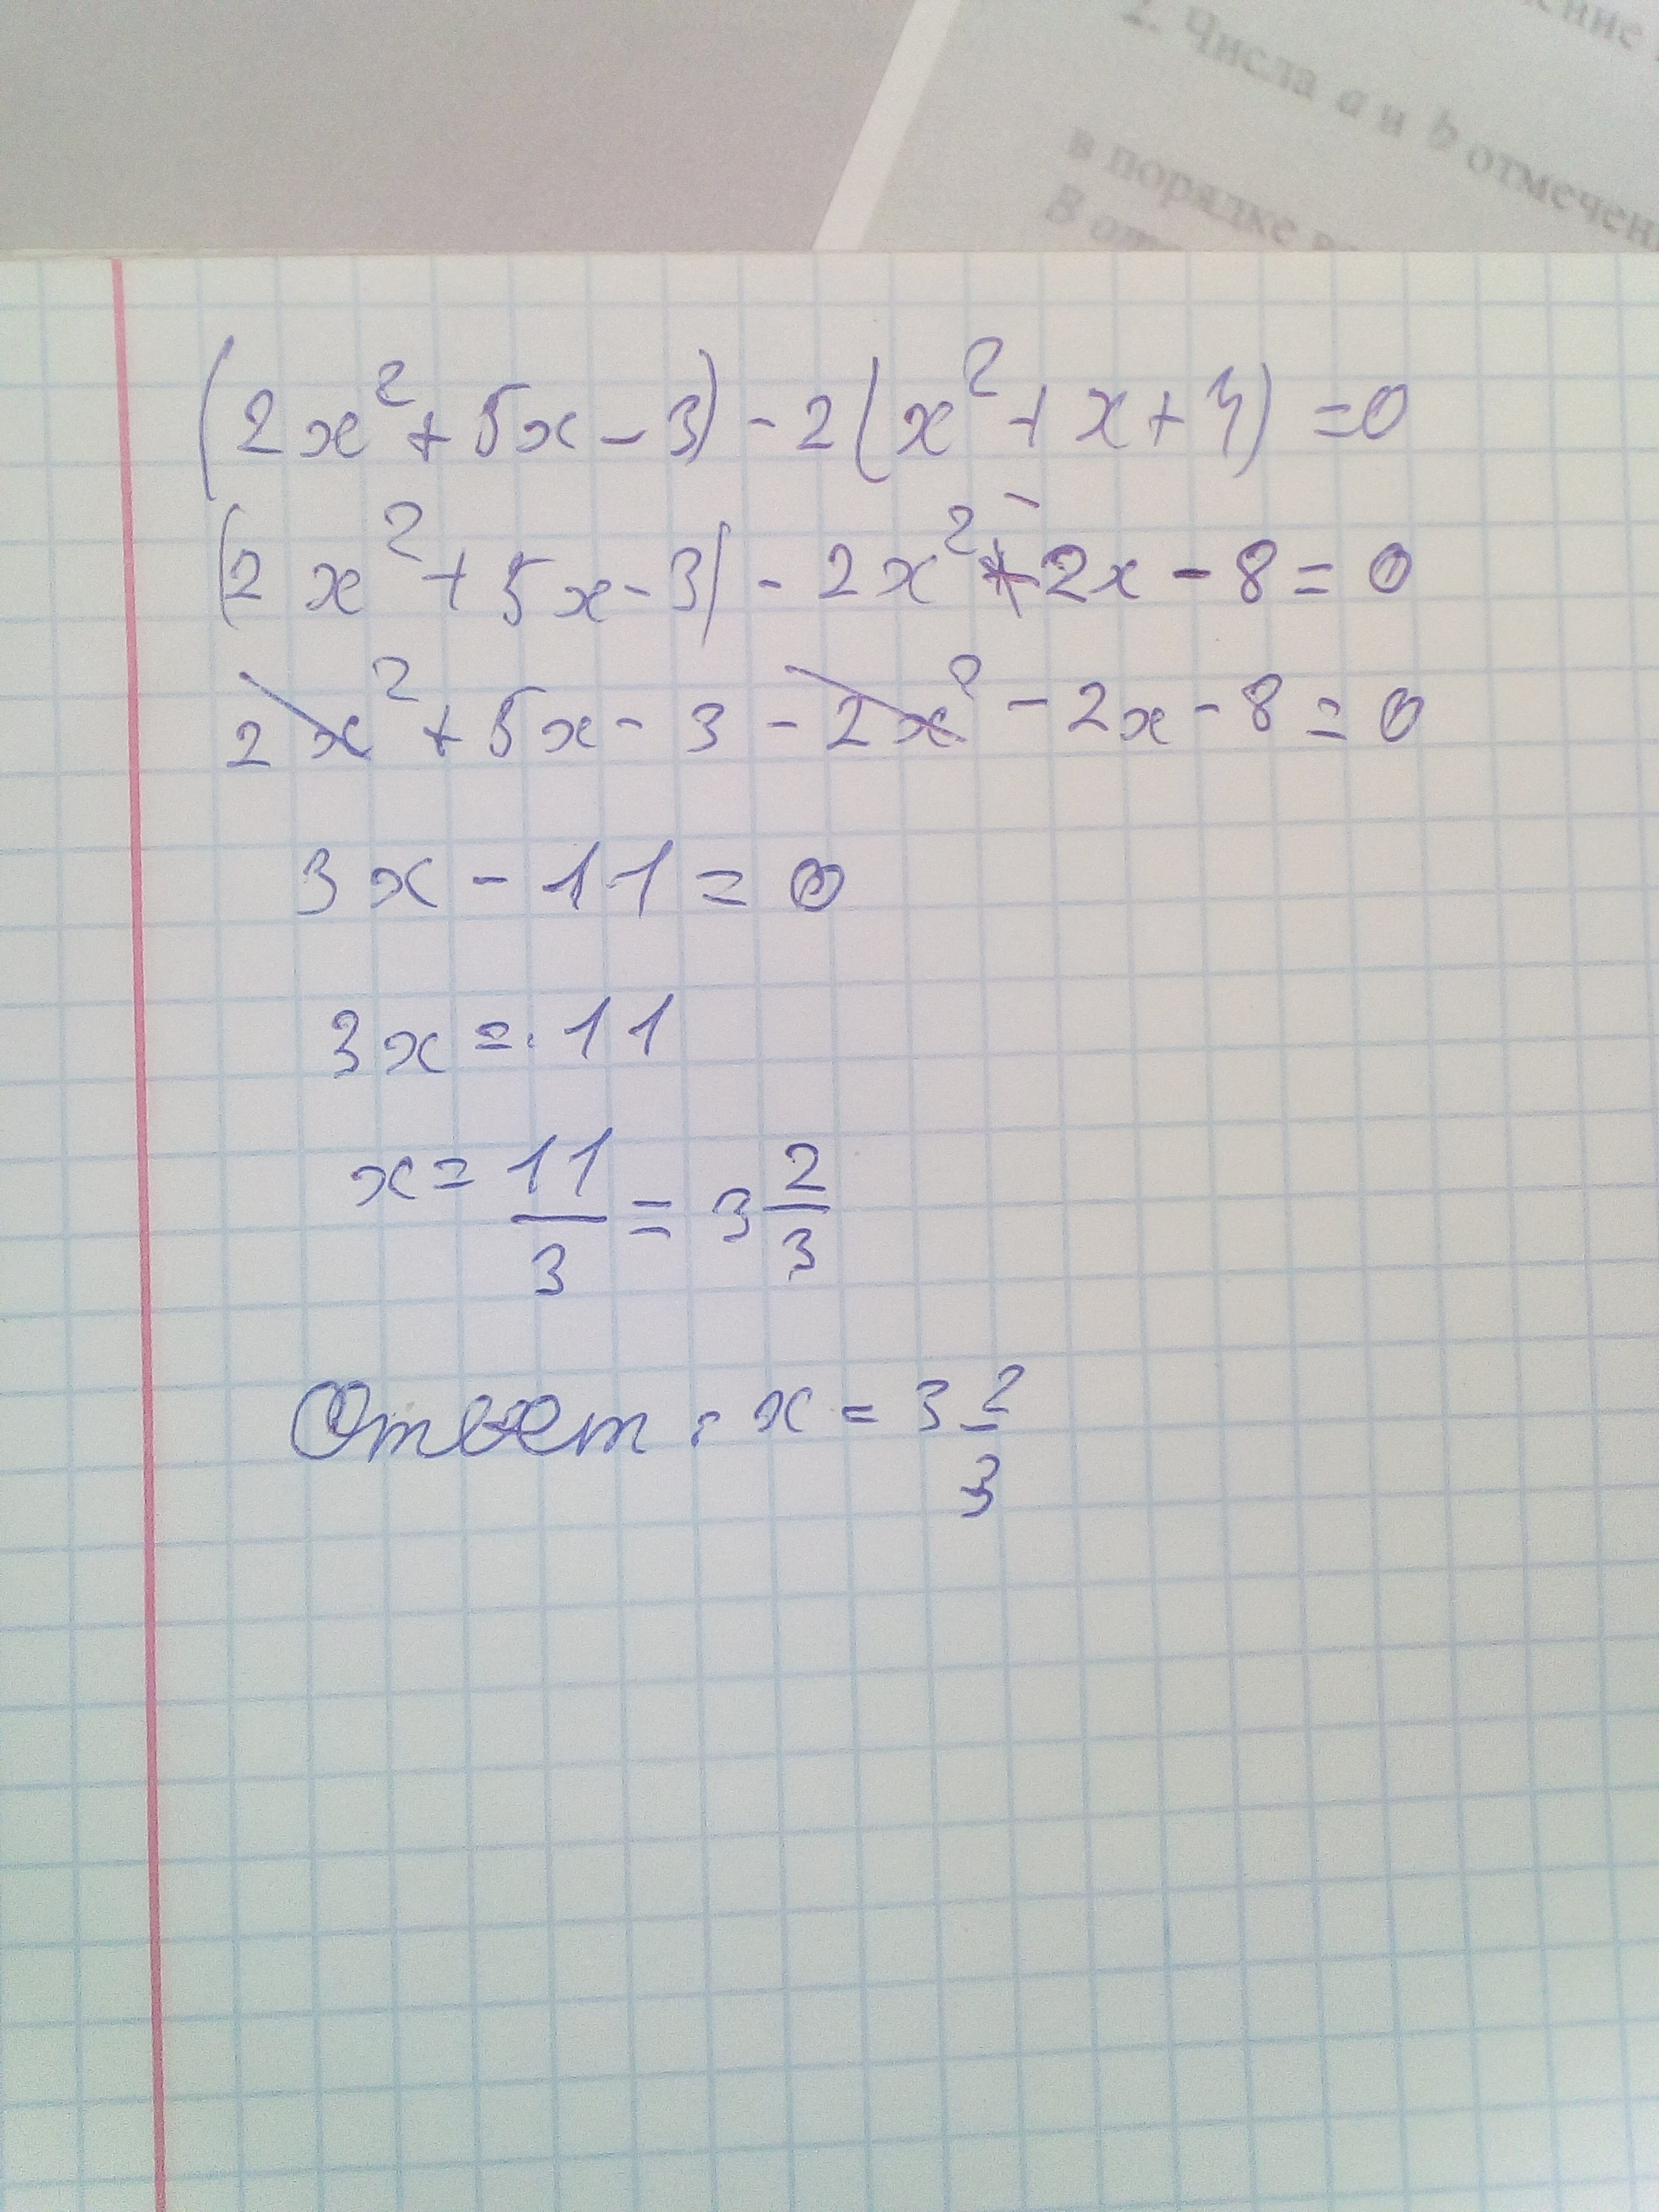 ение
2. Числа a и b отмечен
в порядке
В от
(2x² + 5x - 3) - 2(x² + x + 4) = 0
(2x² + 5x - 3) - 2x² - 2x - 8 = 0
2x² + 5x - 3 - 2x² - 2x - 8 = 0
3x - 11 = 0
3x = 11
x = 11/3 = 3 2/3
Ответ: x = 3 2/3